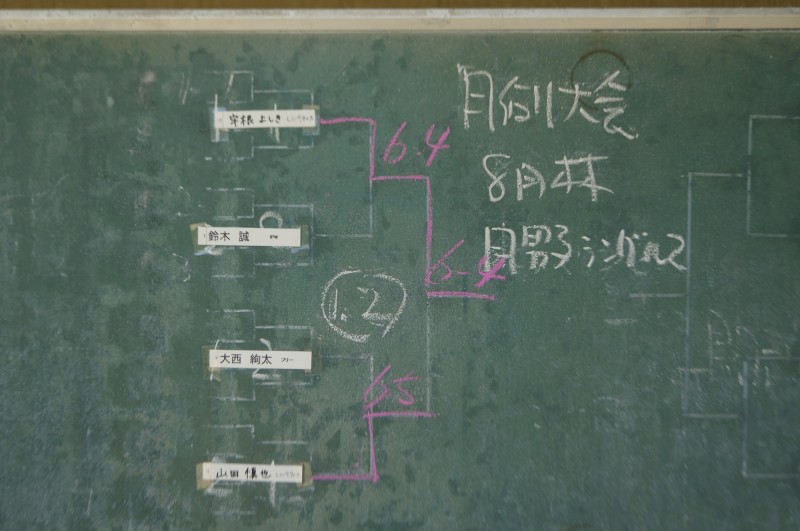 月例大会
8月 杯
男子シングルス
宇根 よしき
6.4
鈴木 誠
6-4
1.2
大西 絢太 フリー
6.5
山田 慎也